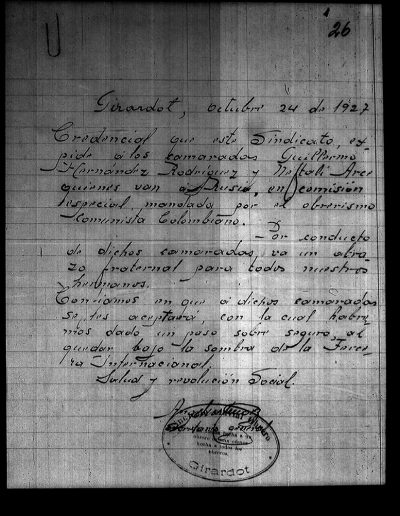 26
Girardot, octubre 24 de 1927
Credencial que este Sindicato, ex-
pide á los camaradas Guillermo
Hernandez Rodriguez y Neftalí Arce
quienes van a Rusia, en comisión
especial mandada por el obrerismo
Comunista Colombiano.
Por conducto
de dichos camaradas, va un abra-
zo fraternal para todos nuestros
hermanos.
Confiamos en que á dichos camaradas
se les aceptará, con la cual habre-
mos dado un paso sobre seguro, al
quedar bajo la sombra de la Terce-
ra Internacional.
Salud y revolución Social.
Secretario general
Girardot